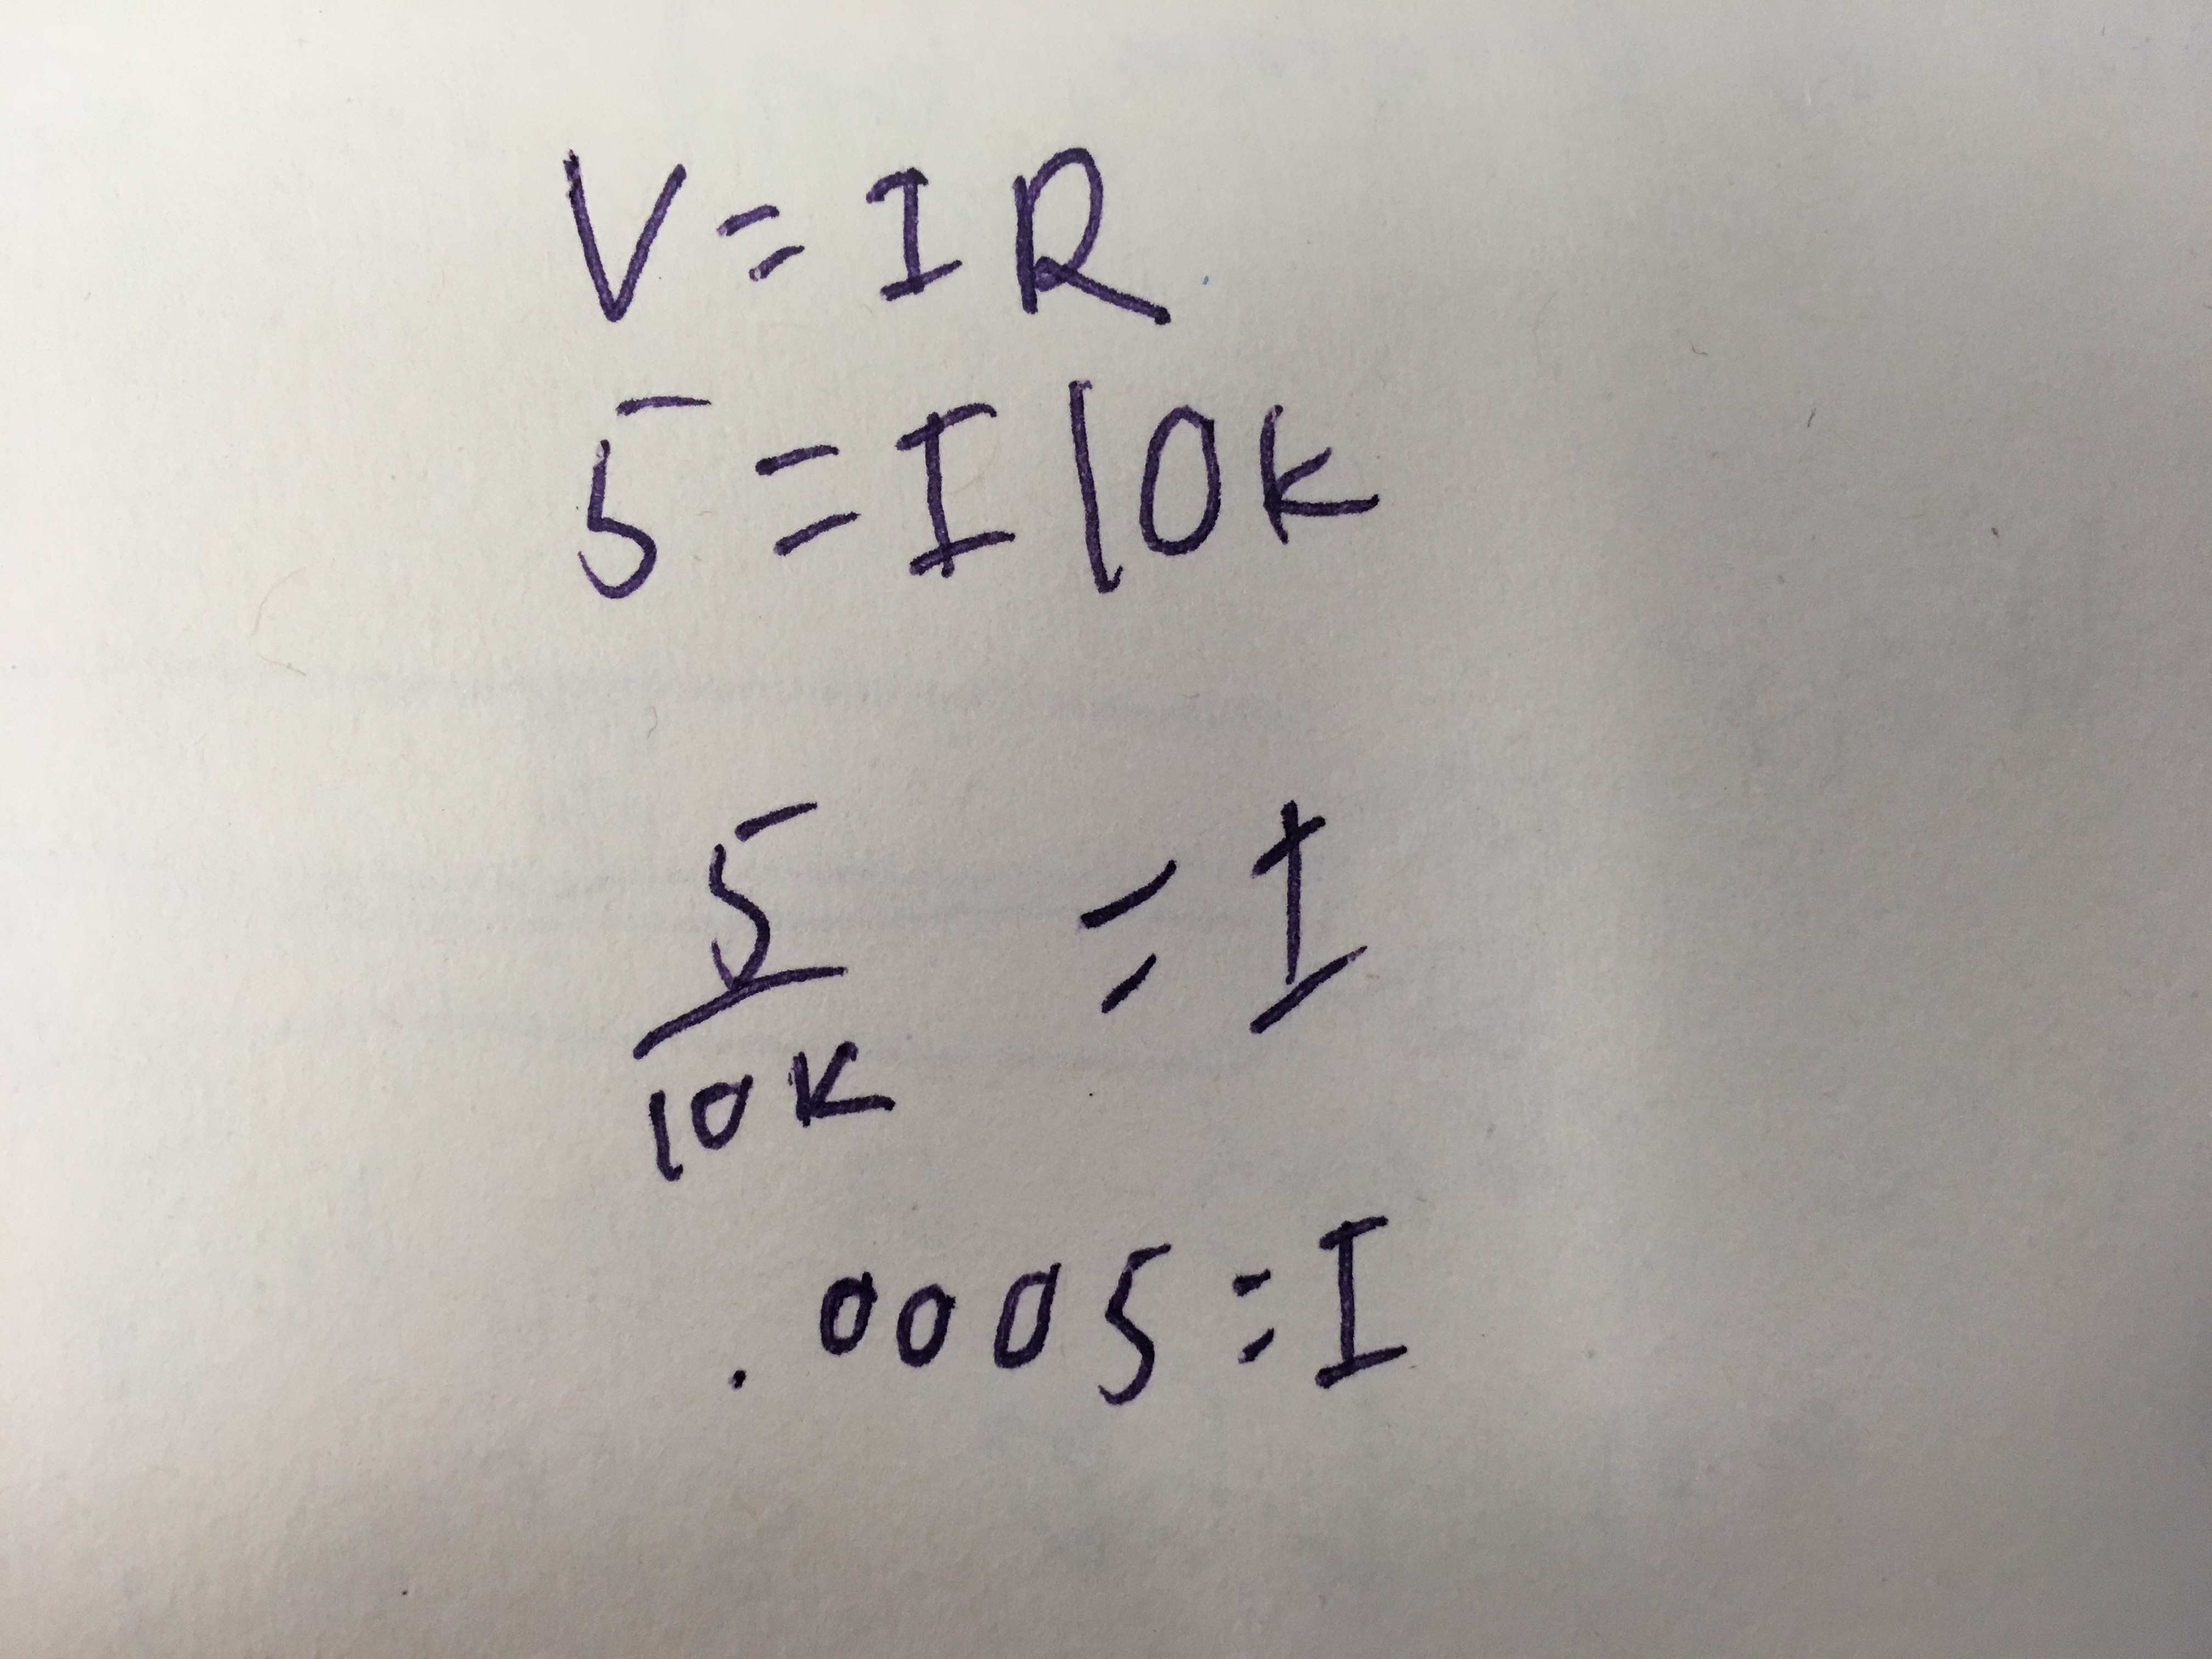 V = IR
5 = I 10K
5/10K = I
.0005 = I